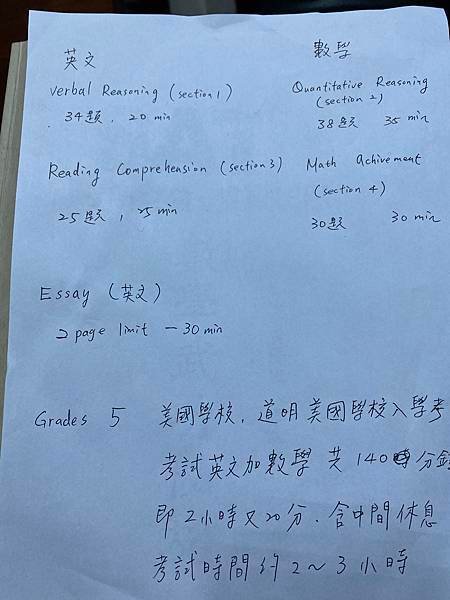 英文
數學
Verbal Reasoning (section 1)
34題, 20 min
Quantitative Reasoning
(section 2)
38題 35 min
Reading Comprehension (section 3)
25題, 25 min
Math Achivement
(section 4)
30題 30 min
Essay (英文)
2 page limit — 30 min
Grades 5 美國學校, 道明美國學校入學考
考試英文加數學 共 140 分鐘
即 2小時又20分. 含中間休息
考試時間約 2~3 小時